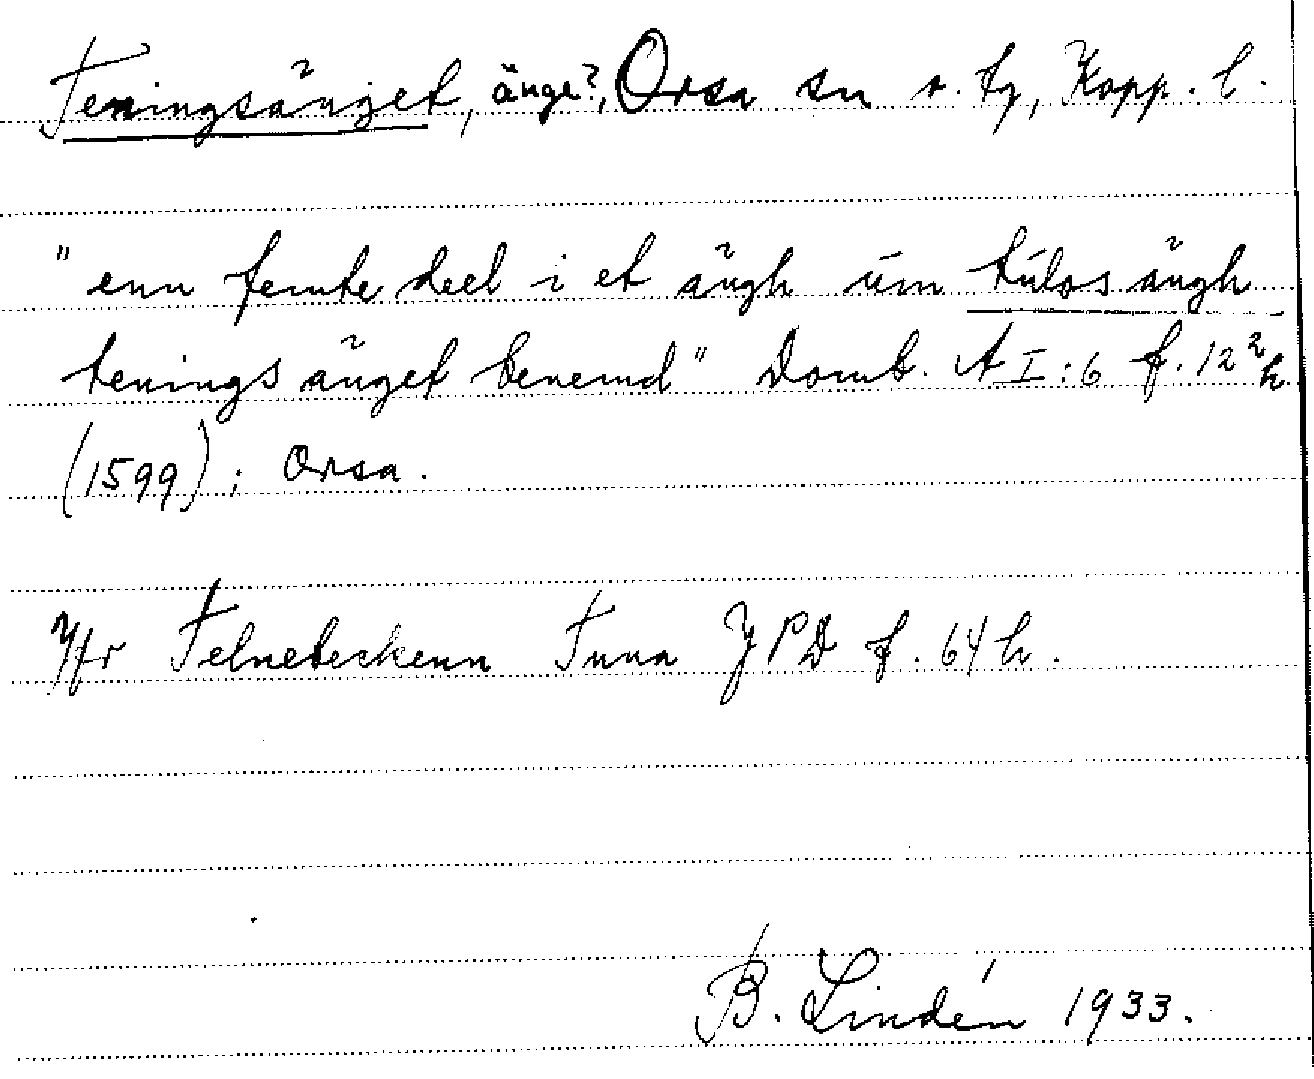 Teningsänget, änge?, Orsa sn o. tg, Kopp. l.
"enn femte deel i et ängh üm tülos ängh
tenings änget benemd" Domb. A I:6 f. 12 2/h
(1599); Orsa.
Jfr Telnebeckenn Tuna JPD f. 64 h.
B. Lindén 1933.